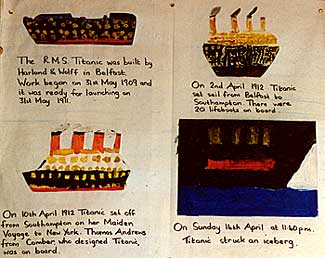 The R.M.S. Titanic was built by
Harland & Wolff in Belfast.
Work began on 31st May 1909 and
it was ready for launching on
31st May 1911.
On 2nd April 1912 Titanic
set sail from Belfast to
Southampton. There were
20 lifeboats on board.
On 10th April 1912 Titanic set off
from Southampton on her Maiden
Voyage to New York. Thomas Andrews
from Comber, who designed Titanic,
was on board.
On Sunday 14th April at 11:40pm.
Titanic struck an iceberg.